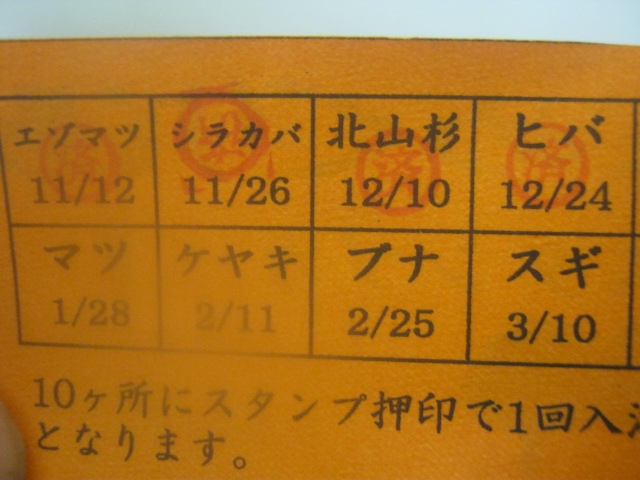 エゾマツ シラカバ 北山杉 ヒバ
11/12 11/26 12/10 12/24
済 済 済
マツ ケヤキ ブナ スギ
1/28 2/11 2/25 3/10
10ヶ所にスタンプ押印で1回入
となります。